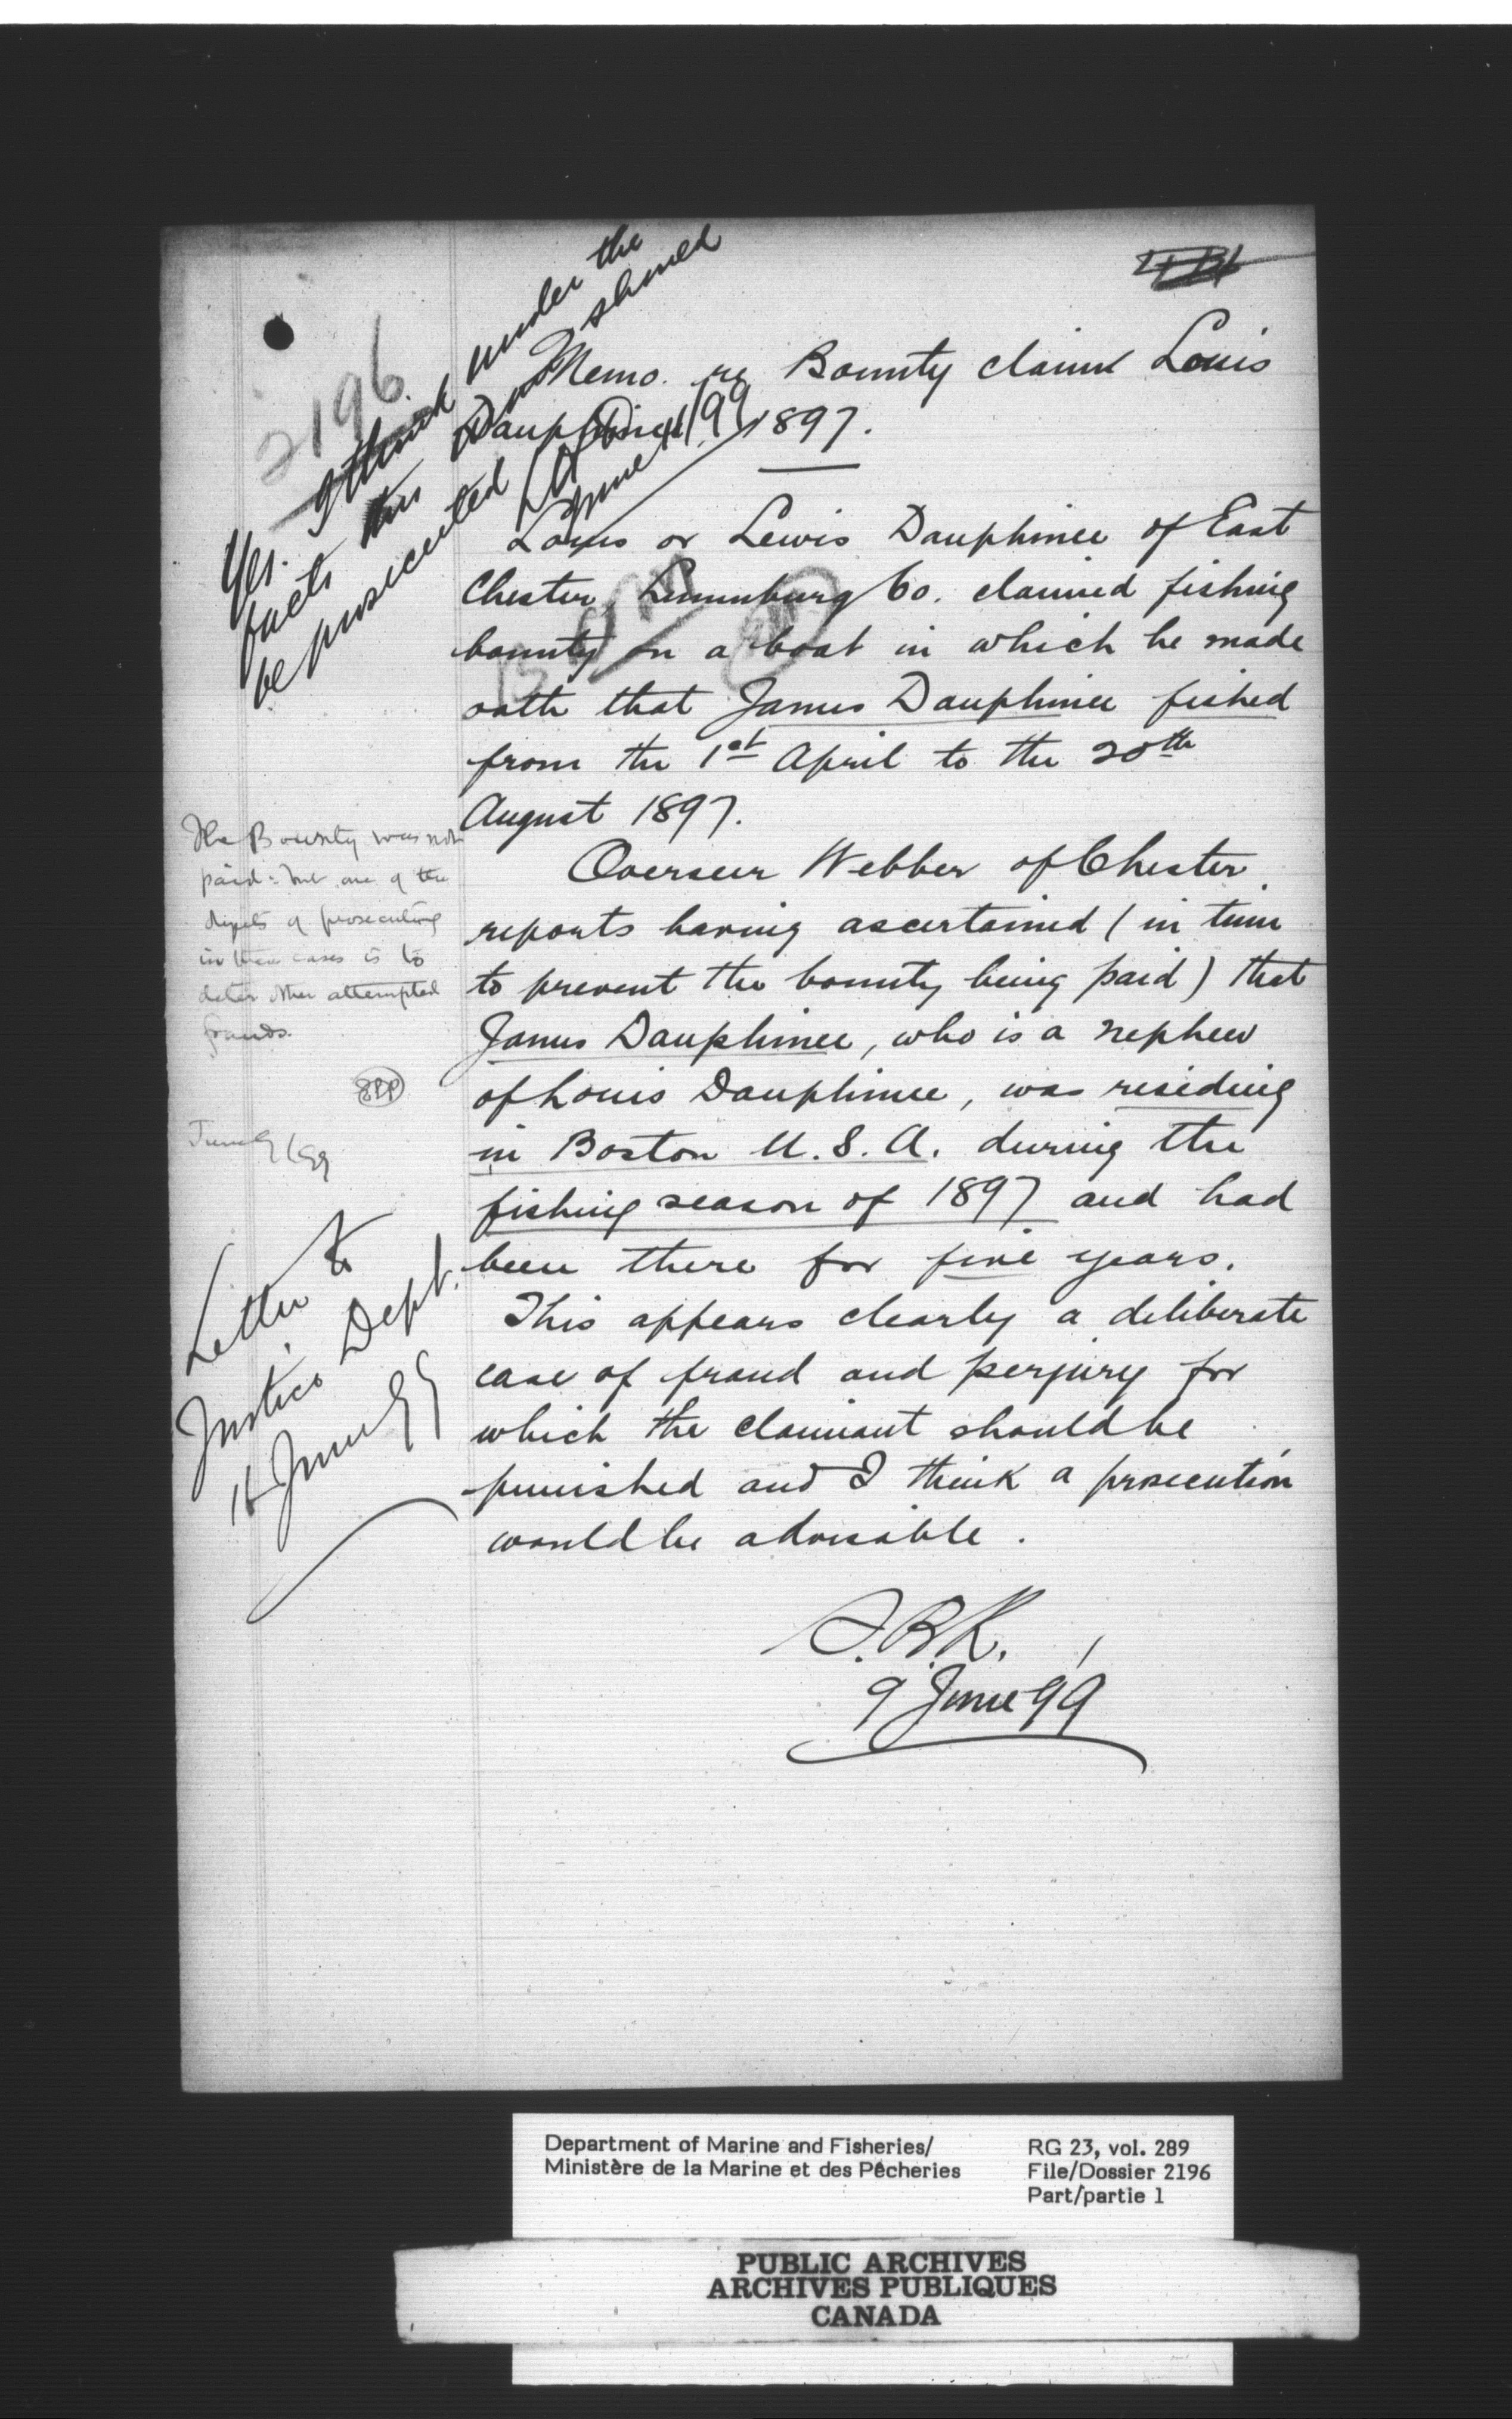 2196
Yes. I think under the
facts this man should
be prosecuted
June 11/99
Memo. re Bounty claim Louis
Dauphinee 1897.
Louis or Lewis Dauphinee of East
Chester, Lunenburg Co. claimed fishing
bounty on a boat in which he made
oath that James Dauphinee fished
from the 1st April to the 20th
August 1897.
Overseer Webber of Chester
reports having ascertained (in time
to prevent the bounty being paid) that
James Dauphinee, who is a nephew
of Louis Dauphinee, was residing
in Boston U.S.A. during the
fishing season of 1897 and had
been there for five years.
This appears clearly a deliberate
case of fraud and perjury for
which the claimant should be
punished and I think a prosecution
would be advisable.
9 June 99
The Bounty was not
paid: but one of the
objects of prosecuting
in these cases is to
deter other attempted
frauds.
June 9/99
Letter to
Justice Dept.
16 June 99
Department of Marine and Fisheries/
Ministère de la Marine et des Pêcheries
RG 23, vol. 289
File/Dossier 2196
Part/partie 1
PUBLIC ARCHIVES
ARCHIVES PUBLIQUES
CANADA